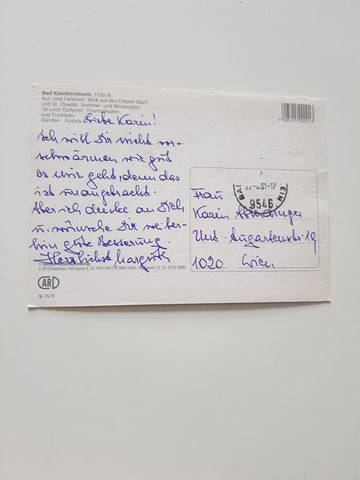 Bad Kleinkirchheim, 1100 m.
Kur- und Ferienort. Blick auf den Ortsteil Bach
und St. Oswald, Sommer- und Wintersport,
18-Loch-Golfplatz, Thermalhallen-
und Freibäder.
Kärnten - Austria
Liebe Karin!
Ich will Dir nicht vor-
schwärmen wie gut
es mir geht, denn das
ist unangebracht.
Aber ich denke an Dich
u. wünsche Dir weiter-
hin gute Besserung.
Herzlichst Margrith
AR
Nr 7579
9546
Frau
Karin
Unt. Augartenstr. 19
1020 Wien